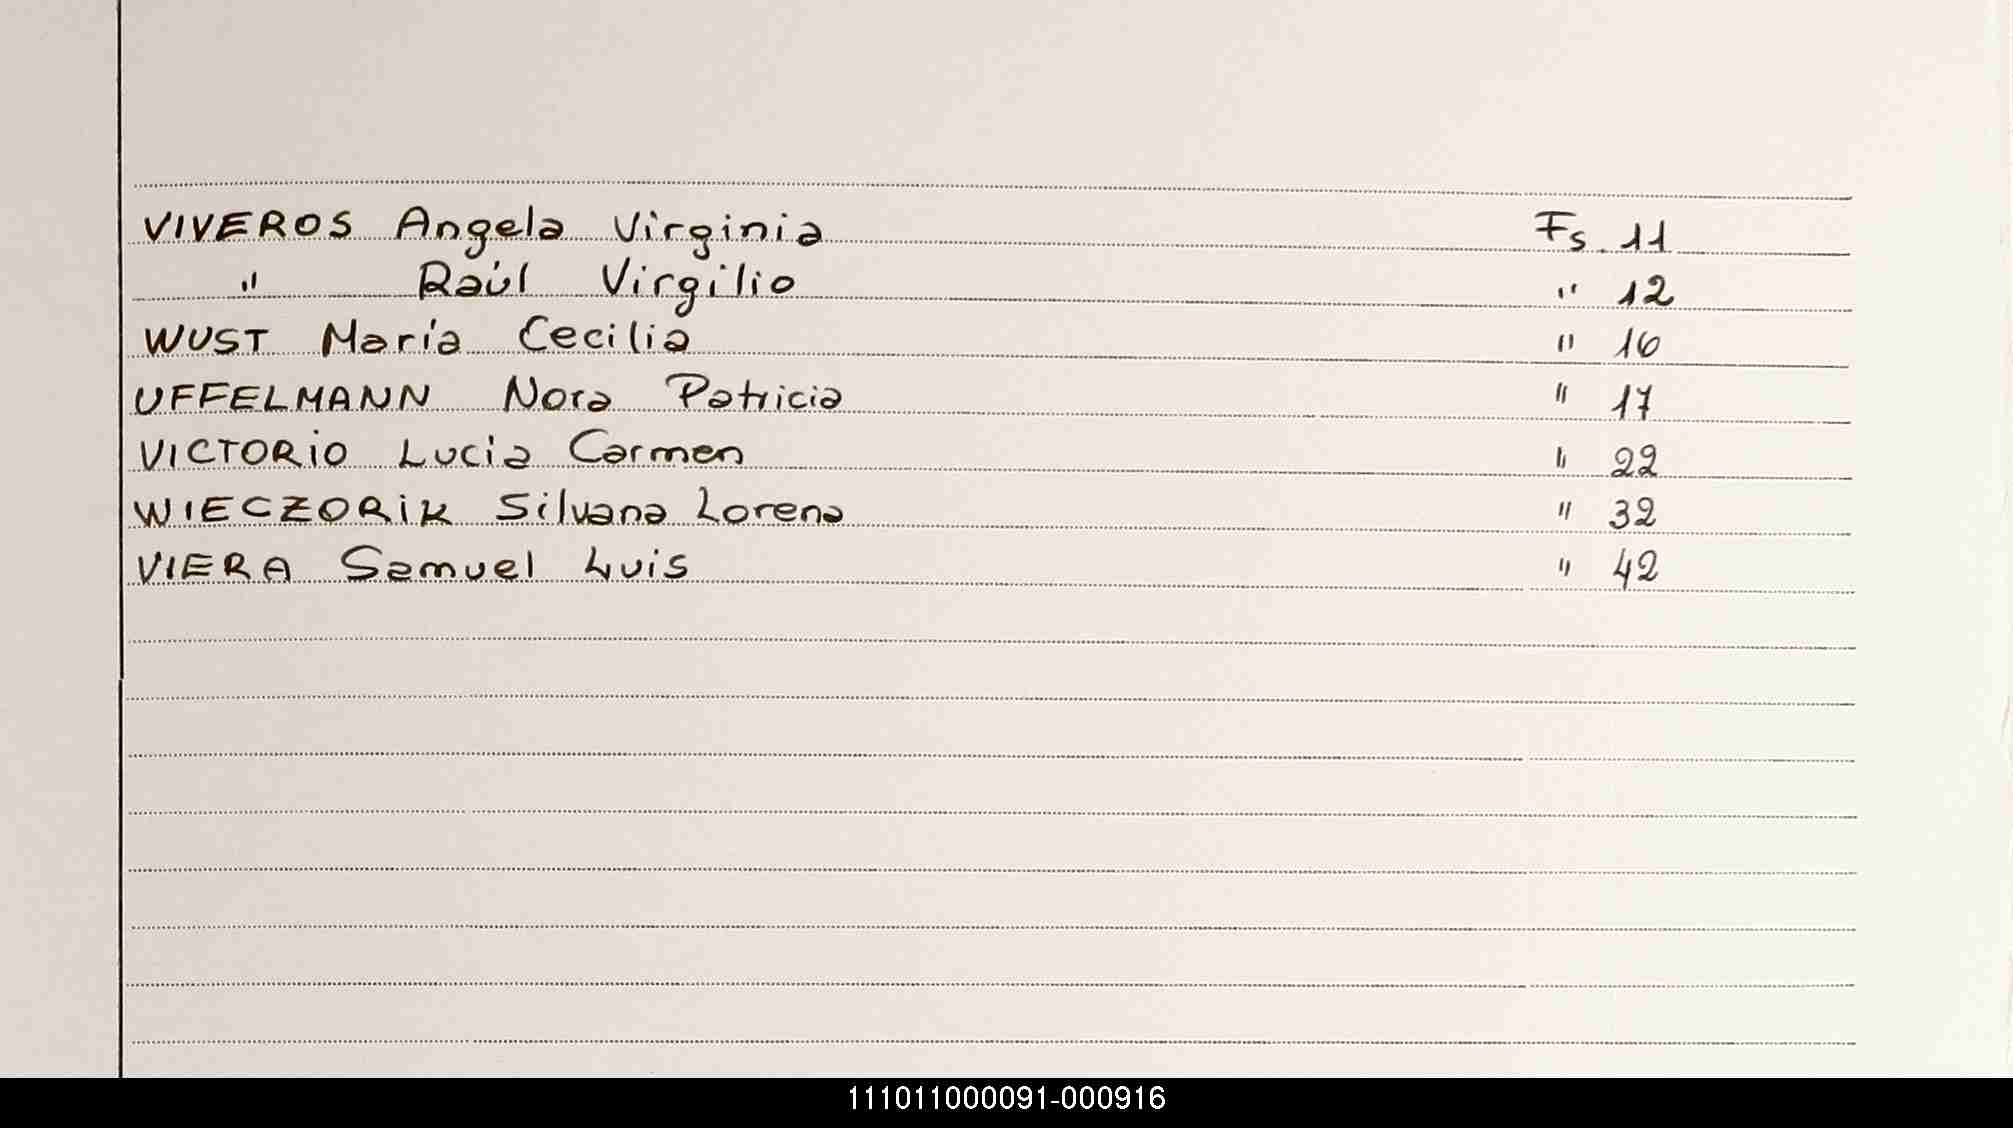 VIVEROS Angela Virginia Fs. 11
" Raúl Virgilio " 12
WUST María Cecilia " 16
UFFELMANN Nora Patricia " 17
VICTORIO Lucia Carmen " 22
WIECZORIK Silvana Lorena " 32
VIERA Samuel Luis " 42
111011000091-000916